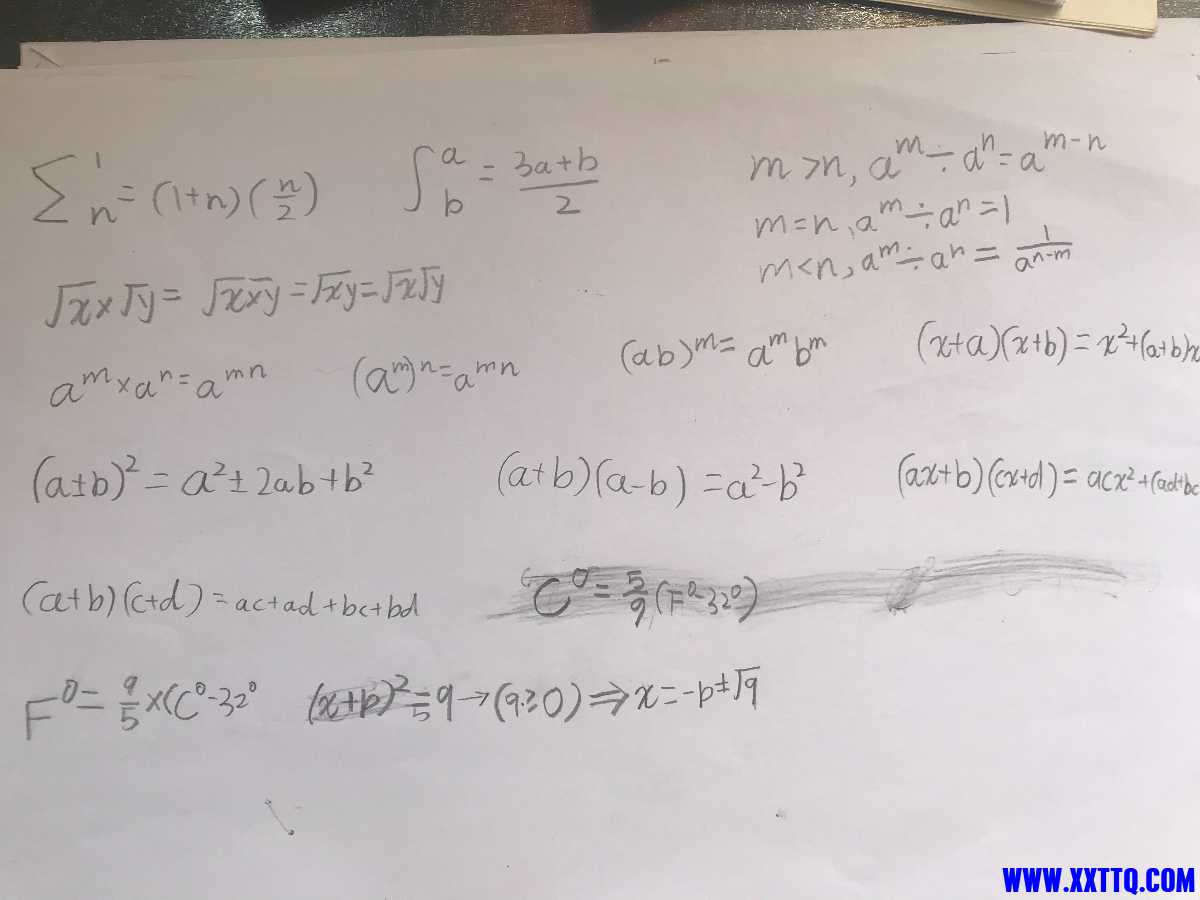 ∑ 1 n = (1+n)(n/2) ∫ a b = 3a+b/2 m>n, a^m÷a^n=a^m-n
m=n, a^m÷a^n=1
m<n, a^m÷a^n = 1/a^n-m
√x×√y= √x×y=√xy=√x√y
a^m×a^n=a^mn (a^m)^n=a^mn (ab)^m=a^m b^m (x+a)(x+b)=x²+(a+b)x
(a±b)²=a²±2ab+b² (a+b)(a-b)=a²-b² (ax+b)(cx+d)=acx²+(ad+bc
(a+b)(c+d)=ac+ad+bc+bd C⁰=5/9(F⁰-32⁰)
F⁰=9/5×(C⁰-32⁰ (x+p)²=9→(9≥0)⇒x=-p±√9
WWW.XXTTQ.COM